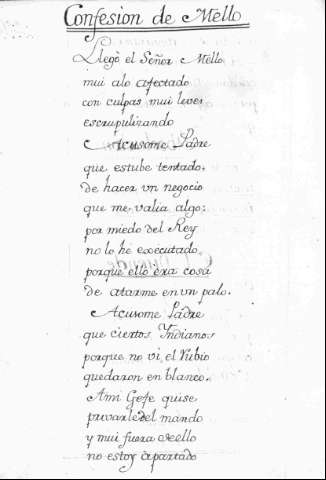 Confesion de Mello
Llegò el Señor Mello
mui alo afectado
con culpas mui leves
escrupulizando
Acusome Padre
que estube tentado,
de hacer vn negocio
que me valia algo:
por miedo del Rey
no lo hé executado,
porque ello era cosa
de atarme en vn palo.
Acusome Padre
que ciertos Indianos
porque no vi, el Rubio
quedaron en blanco.
Ami Gefe quise
privarle del mando
y mui fuera de ello
no estoy apartado